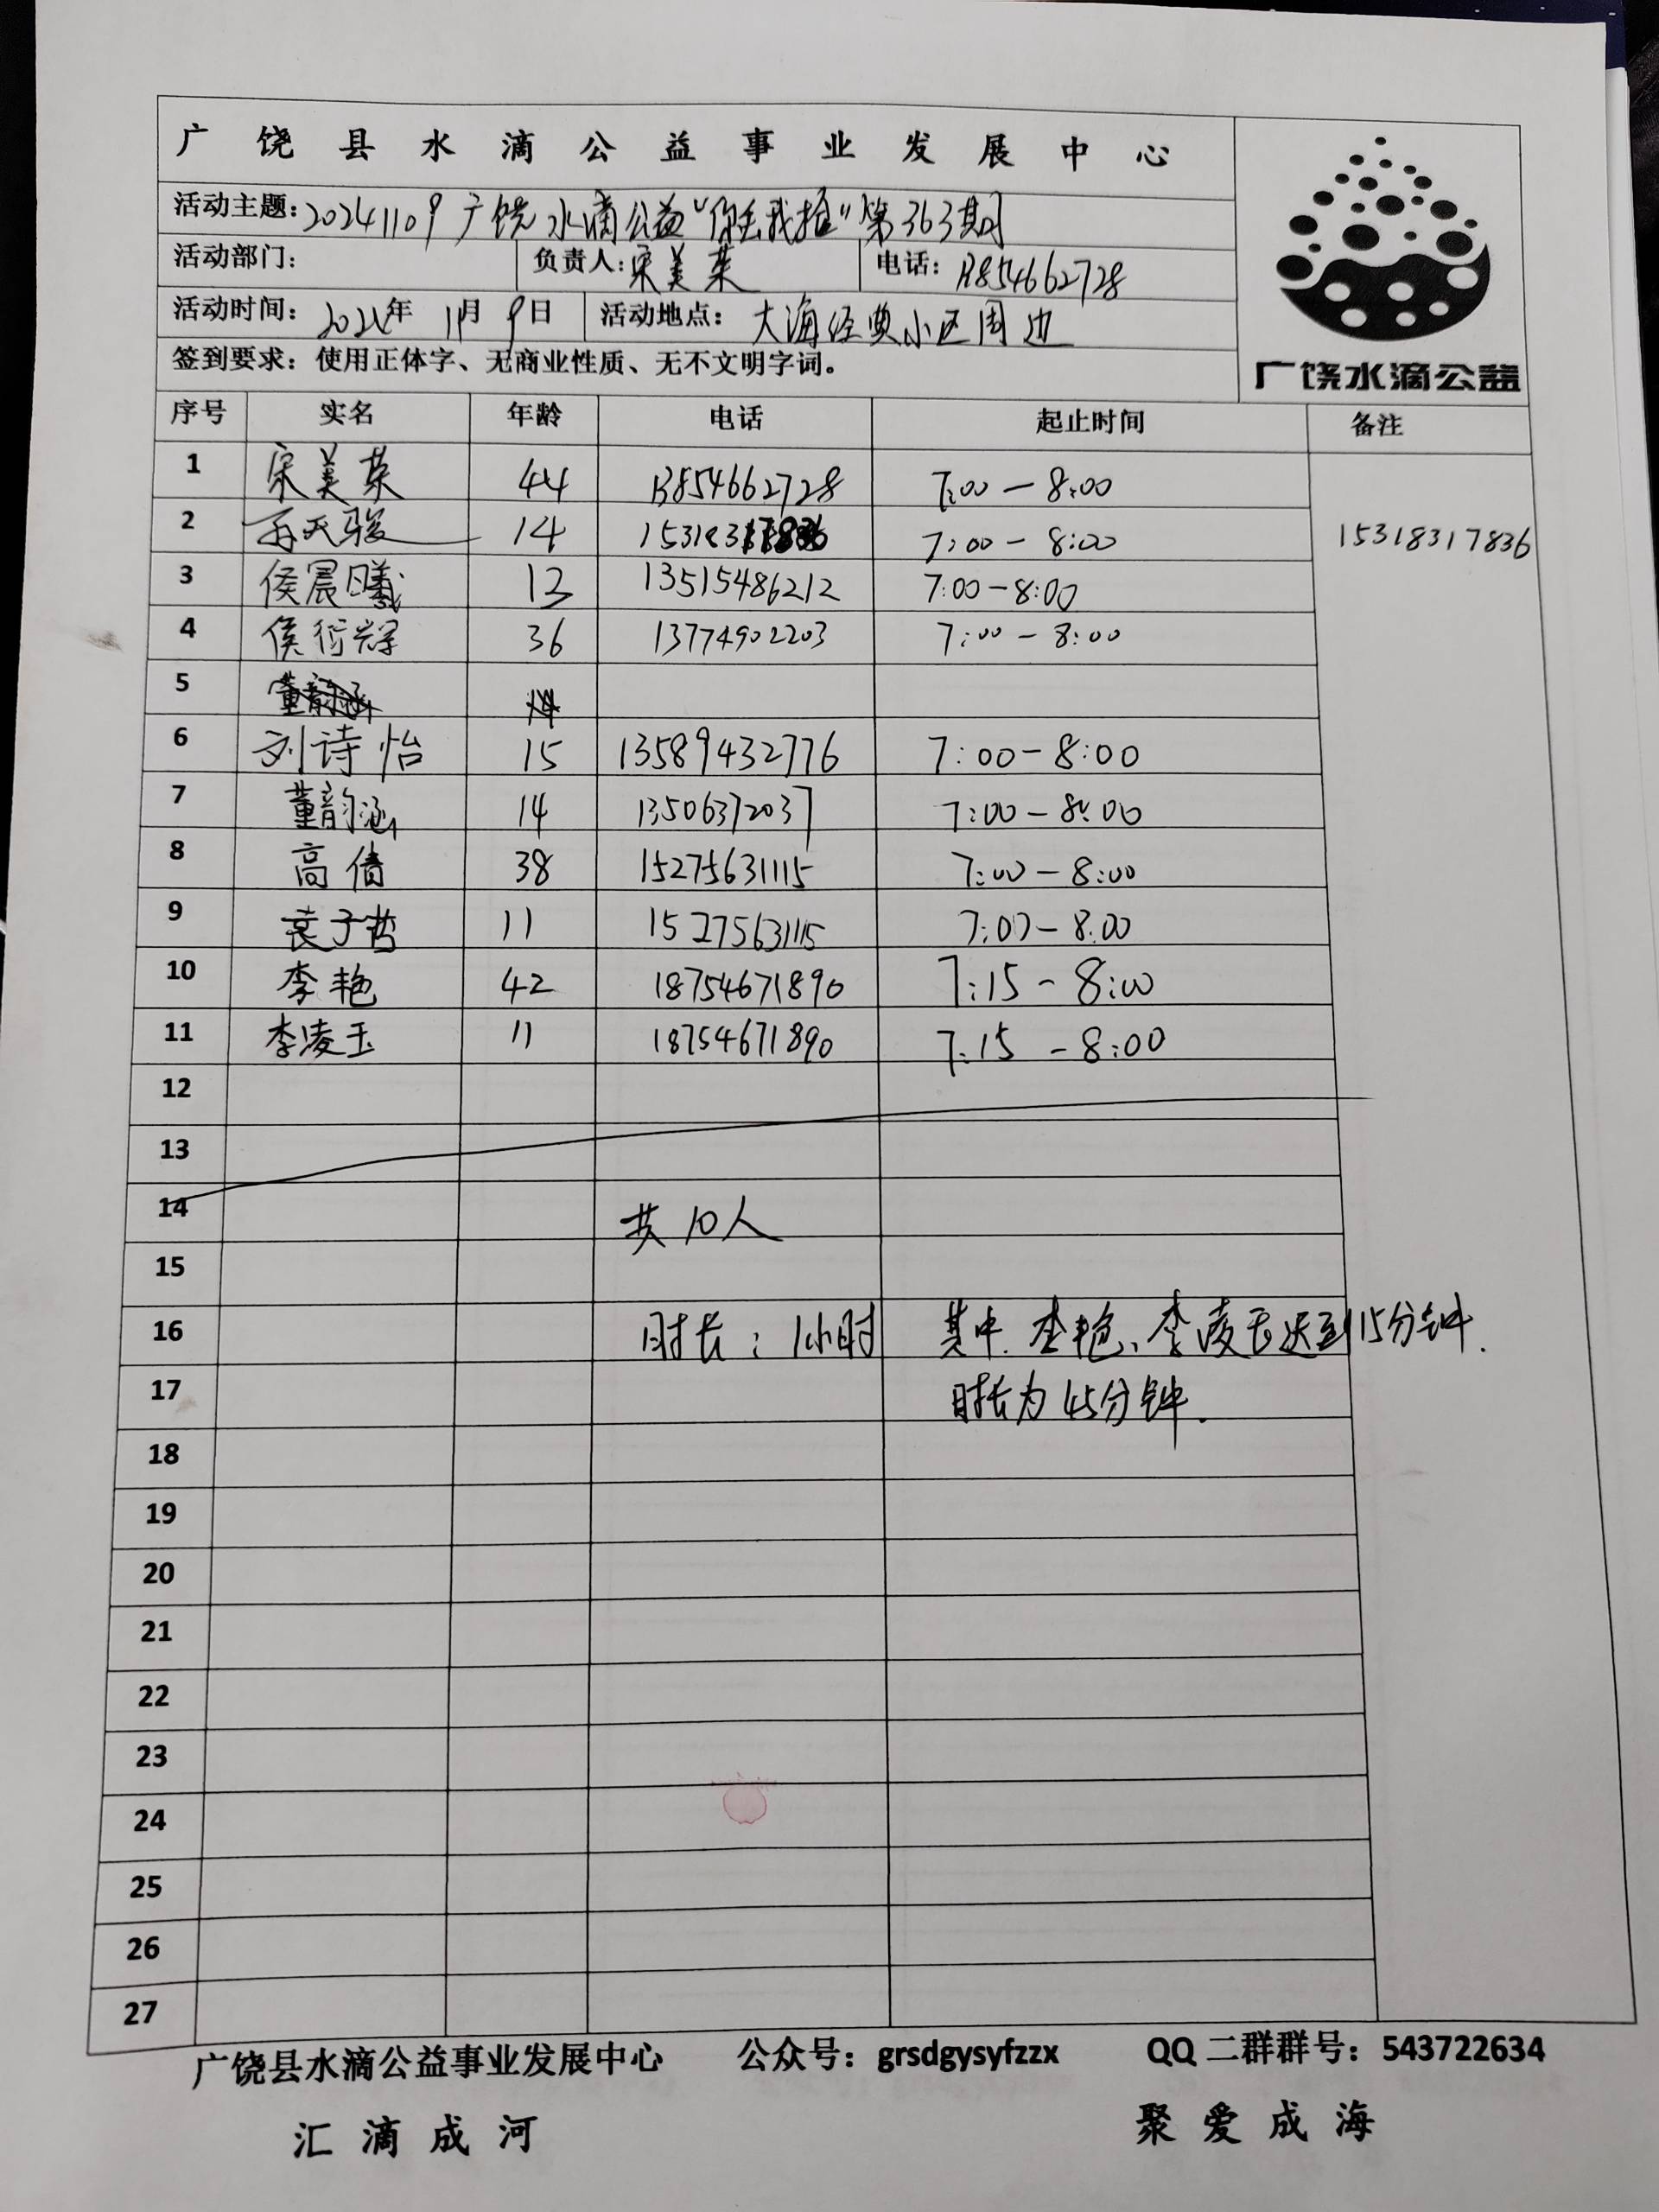 广饶县水滴公益事业发展中心
活动主题：20241109广饶水滴公益“你丢我捡”第363期
活动部门： 负责人：宋美荣 电话：13854662728
活动时间：2024年 11月 9日 活动地点：大海经典小区周边
签到要求：使用正体字、无商业性质、无不文明字词。
广饶水滴公益
序号 实名 年龄 电话 起止时间 备注
1 宋美荣 44 13854662728 7:00-8:00
2 天骏 14 15318317836 7:00-8:00 15318317836
3 侯晨曦 13 13515486212 7:00-8:00
4 侯衍辉 36 13774902203 7:00-8:00
5 董韵涵 14
6 刘诗怡 15 13589432776 7:00-8:00
7 董韵涵 14 13506372037 7:00-8:00
8 高倩 38 15275631115 7:00-8:00
9 袁子哲 11 15275631115 7:00-8:00
10 李艳 42 18754671890 7:15-8:00
11 李凌玉 11 18754671890 7:15-8:00
12
13
14 共10人
15
16 时长：1小时 其中李艳、李凌玉迟到15分钟.
17 时长为45分钟.
18
19
20
21
22
23
24
25
26
27
广饶县水滴公益事业发展中心 公众号：grsdgysyfzzx QQ二群群号：543722634
汇滴成河 聚爱成海